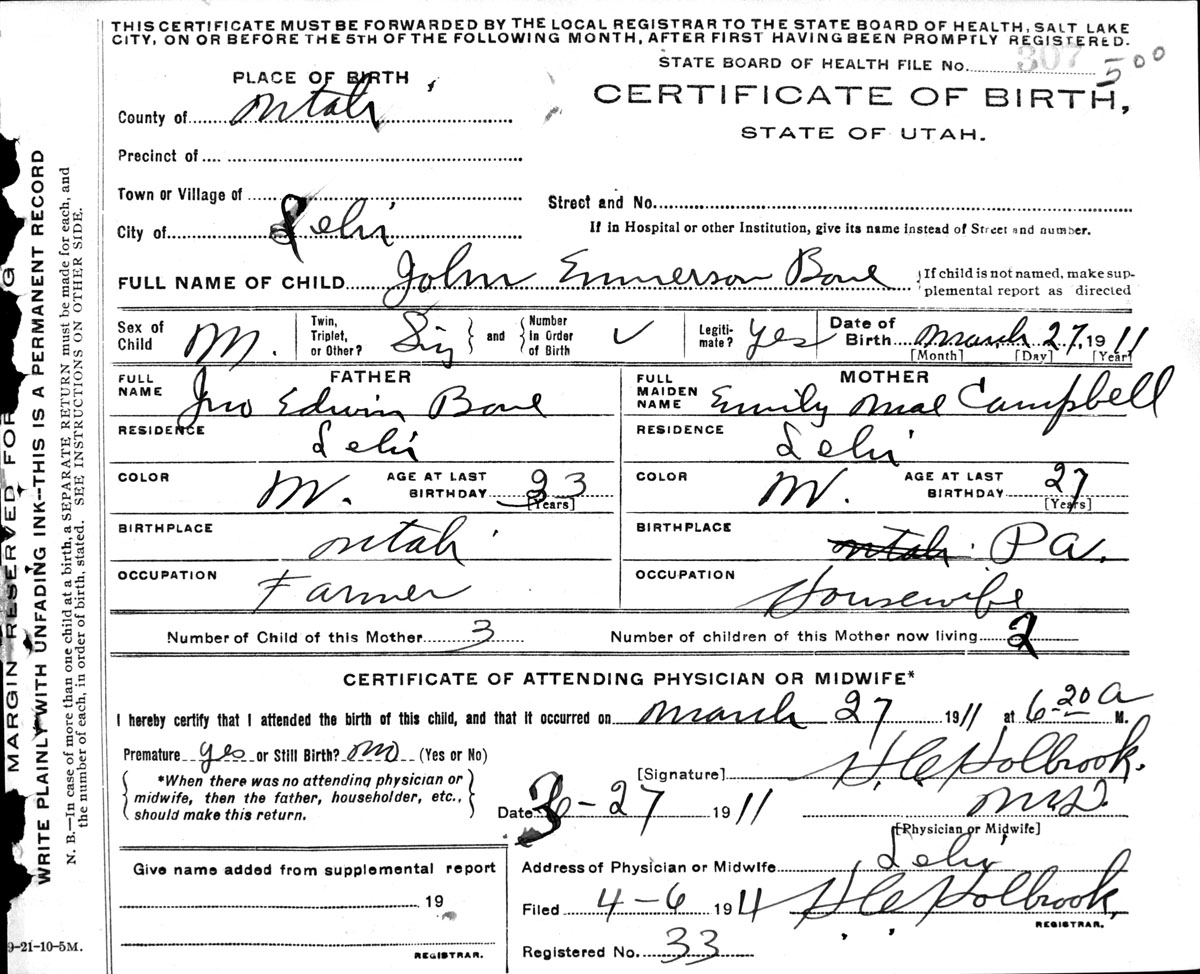 THIS CERTIFICATE MUST BE FORWARDED BY THE LOCAL REGISTRAR TO THE STATE BOARD OF HEALTH, SALT LAKE
CITY, ON OR BEFORE THE 5TH OF THE FOLLOWING MONTH, AFTER FIRST HAVING BEEN PROMPTLY REGISTERED.
STATE BOARD OF HEALTH FILE No. 307 500
PLACE OF BIRTH
CERTIFICATE OF BIRTH,
STATE OF UTAH.
County of Utah
Precinct of
Town or Village of
Street and No.
City of Lehi
If in Hospital or other Institution, give its name instead of Street and number.
FULL NAME OF CHILD John Emmerson Bone
If child is not named, make sup-
plemental report as directed
Sex of Child M.
Twin, Triplet, or Other? Sing and Number in Order of Birth ✓
Legiti-mate? Yes
Date of Birth March 27, 1911
[Month] [Day] [Year]
FATHER
FULL NAME Jno Edwin Bone
RESIDENCE Lehi
COLOR W. AGE AT LAST BIRTHDAY 33
[Years]
BIRTHPLACE Utah
OCCUPATION Farmer
MOTHER
FULL MAIDEN NAME Emily Mae Campbell
RESIDENCE Lehi
COLOR W. AGE AT LAST BIRTHDAY 27
[Years]
BIRTHPLACE Utah Pa.
OCCUPATION Housewife
Number of Child of this Mother 3 Number of children of this Mother now living 2
CERTIFICATE OF ATTENDING PHYSICIAN OR MIDWIFE*
I hereby certify that I attended the birth of this child, and that it occurred on March 27 1911 at 6-20 A M.
Premature yes or Still Birth? no (Yes or No)
*When there was no attending physician or
midwife, then the father, householder, etc.,
should make this return.
[Signature] H C Holbrook.
Date 3-27 1911 M.D.
[Physician or Midwife]
Give name added from supplemental report
19
REGISTRAR.
Address of Physician or Midwife Lehi
Filed 4-6 1911 H C Holbrook,
REGISTRAR.
Registered No. 33
9-21-10-5M.
MARGIN RESERVED FOR G
WRITE PLAINLY WITH UNFADING INK--THIS IS A PERMANENT RECORD
N. B.—In case of more than one child at a birth, a SEPARATE RETURN must be made for each, and
the number of each, in order of birth, stated. SEE INSTRUCTIONS ON OTHER SIDE.